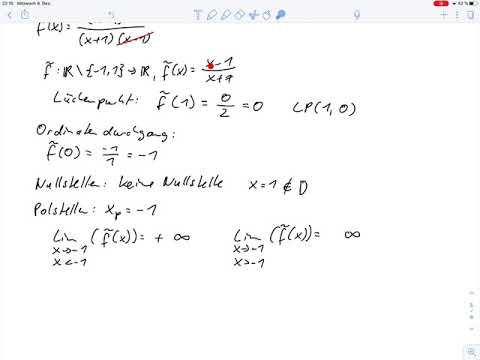 22:15 Mittwoch 9. Dez.
42 %
f(x) =
(x+1) (x-1)
f̃ : ℝ \ {-1,1} → ℝ, f̃(x) = x-1 / x+1
Lückenpunkt: f̃(1) = 0/2 = 0 LP(1, 0)
Ordinatendurchgang:
f̃(0) = -1/1 = -1
Nullstellen: keine Nullstelle x=1 ∉ D
Polstellen: xₚ = -1
lim (f̃(x)) = + ∞ lim (f̃(x)) = ∞
x→-1 x→-1
x<-1 x>-1